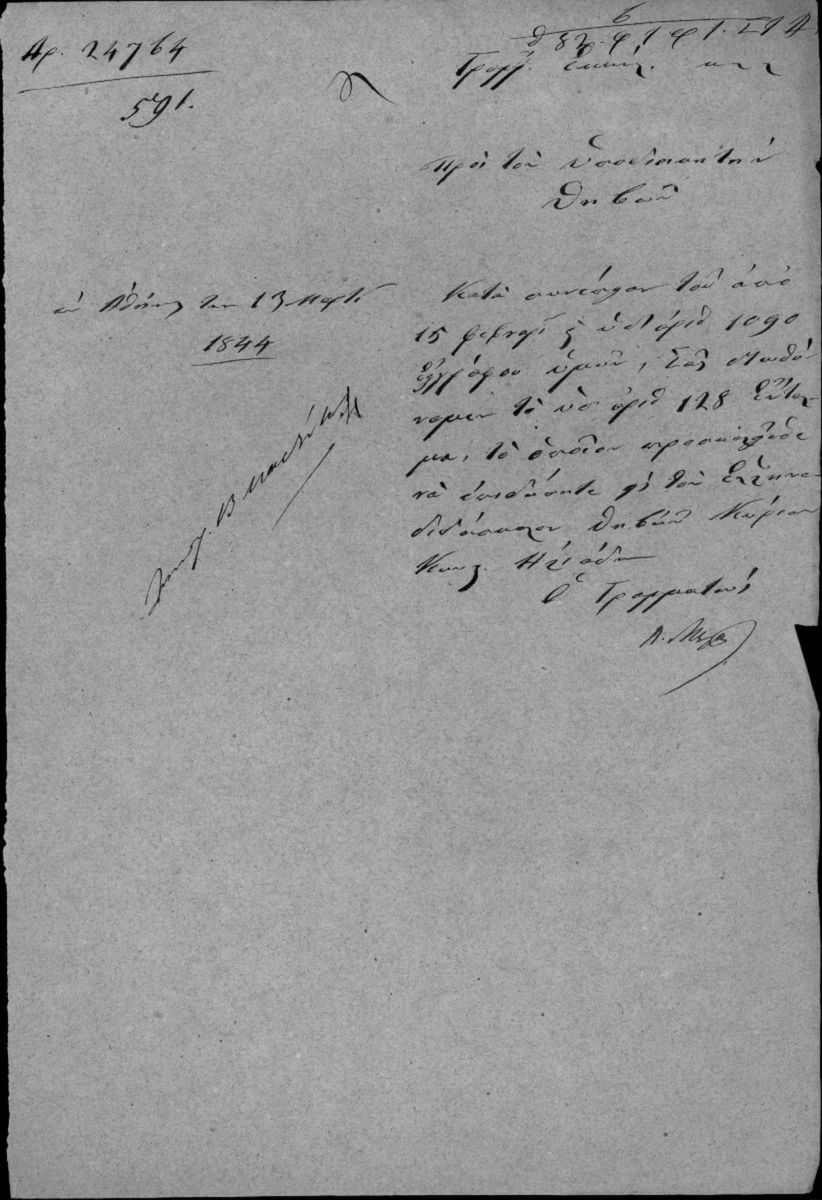 Αρ. 24764
591.
Γραμμ. Εκκλ. κτλ
Πρὸς τὸν ὑποδιοικητὴν
Θηβῶν
ἐν Ἀθήναις τὴν 13 Μαρτ
1844
Κατὰ συνέπειαν τοῦ ἀπὸ
15 φεβρ ὑπ ἀριθ 1090
ἐγγράφου ὑμῶν, Σᾶς διευθύ
νομεν τὸ ὑπ ἀριθ 128 ἔνταλ
μα, τὸ ὁποῖον προσκαλεῖσθε
νὰ ἐπιδώσητε εἰς τὸν Ἑλληνο
διδάσκαλον Θηβῶν Κύριον
Ὁ Γραμματεὺς